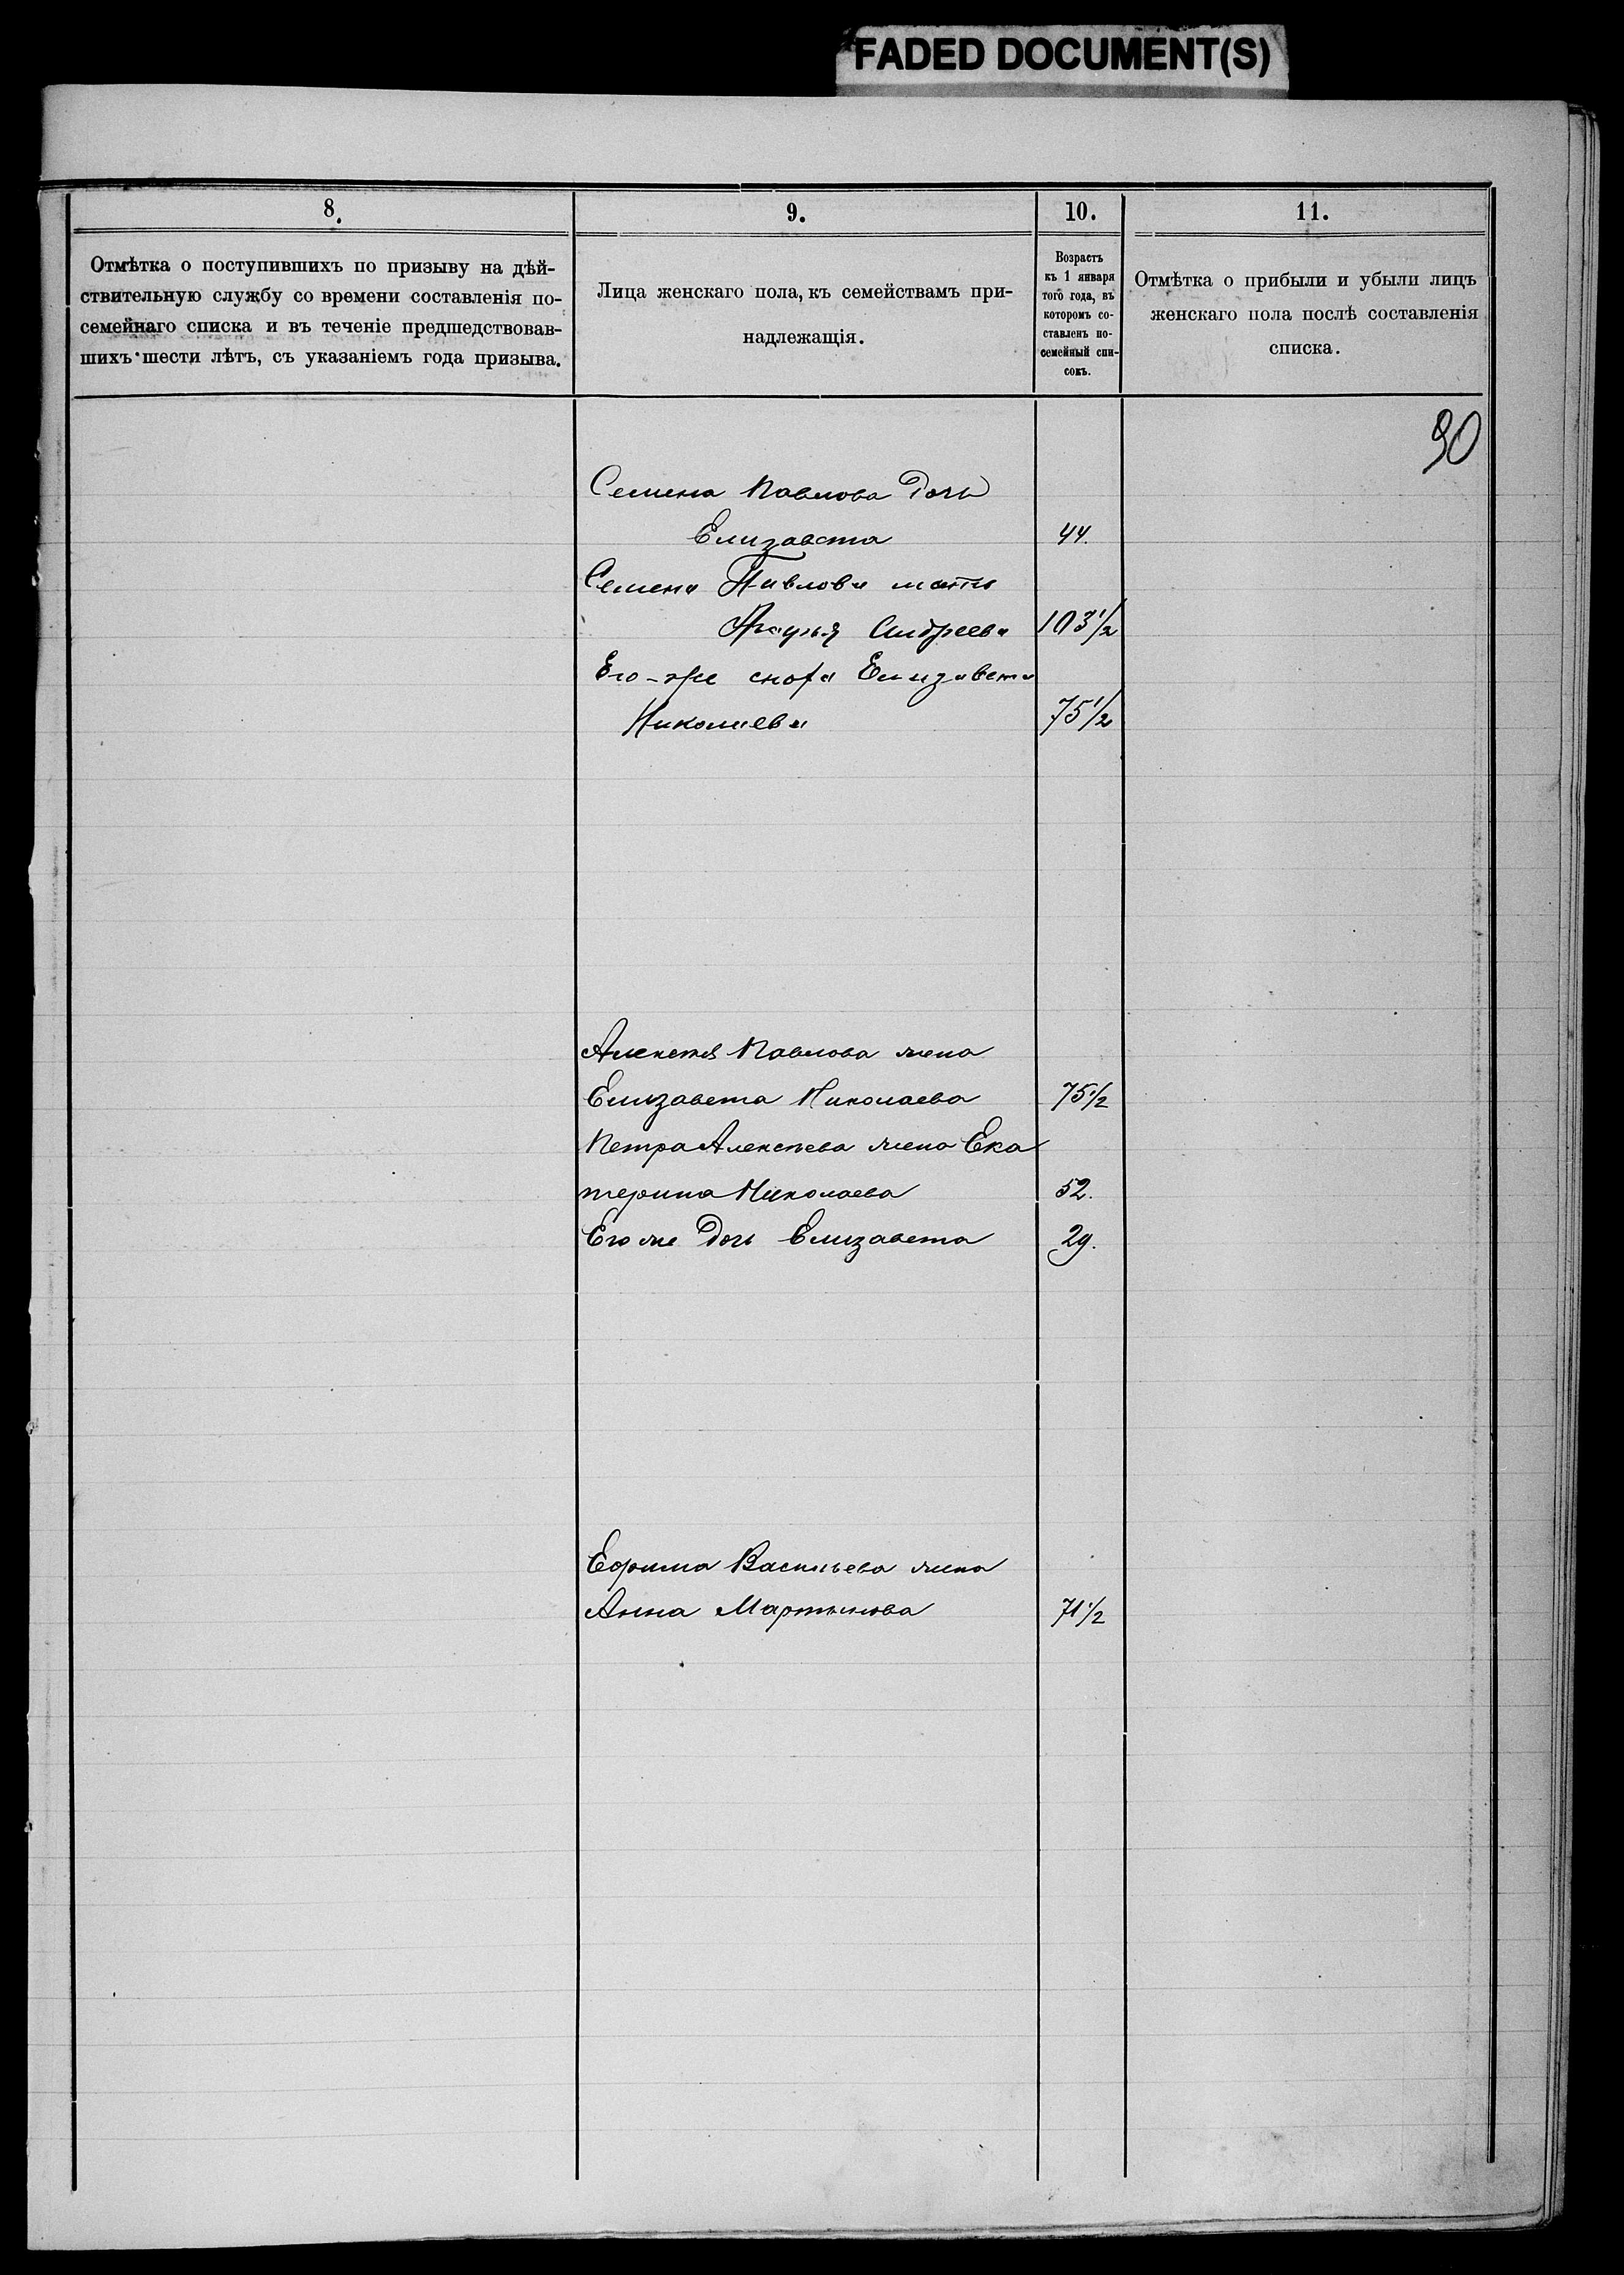 FADED DOCUMENT(S)
8.
9.
10.
11.
Отмѣтка о поступившихъ по призыву на дѣй-
ствительную службу со времени составленія по-
семейнаго списка и въ теченіе предшедствовав-
шихъ шести лѣтъ, съ указаніемъ года призыва.
Лица женскаго пола, къ семействамъ при-
надлежащія.
Возрастъ
къ 1 января
того года, въ
которомъ со-
ставленъ по-
семейный спи-
сокъ.
Отмѣтка о прибыли и убыли лицъ
женскаго пола послѣ составленія
списка.
90
Семена Павлова Дочь
Елизавета 44.
Семена Павлова мать
Андреева 103 1/2
Его-же сноха Елизавета
Николаева 75 1/2
Алексѣя Павлова жена
Елизавета Николаева 75 1/2
Петра Алексѣева жена Ека
терина Николаева 52.
Его же Дочь Елизавета 29.
Ефима Васильева жена
Анна Мартынова 71 1/2